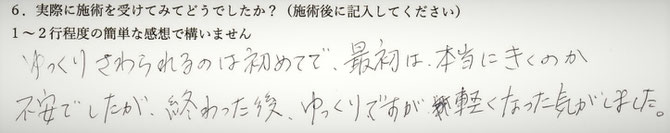 6．実際に施術を受けてみてどうでしたか？（施術後に記入してください）
1～2行程度の簡単な感想で構いません
ゆっくりさわられるのは初めてで、最初は、本当にきくのか
不安でしたが、終わった後、ゆっくりですが軽くなった気がしました。